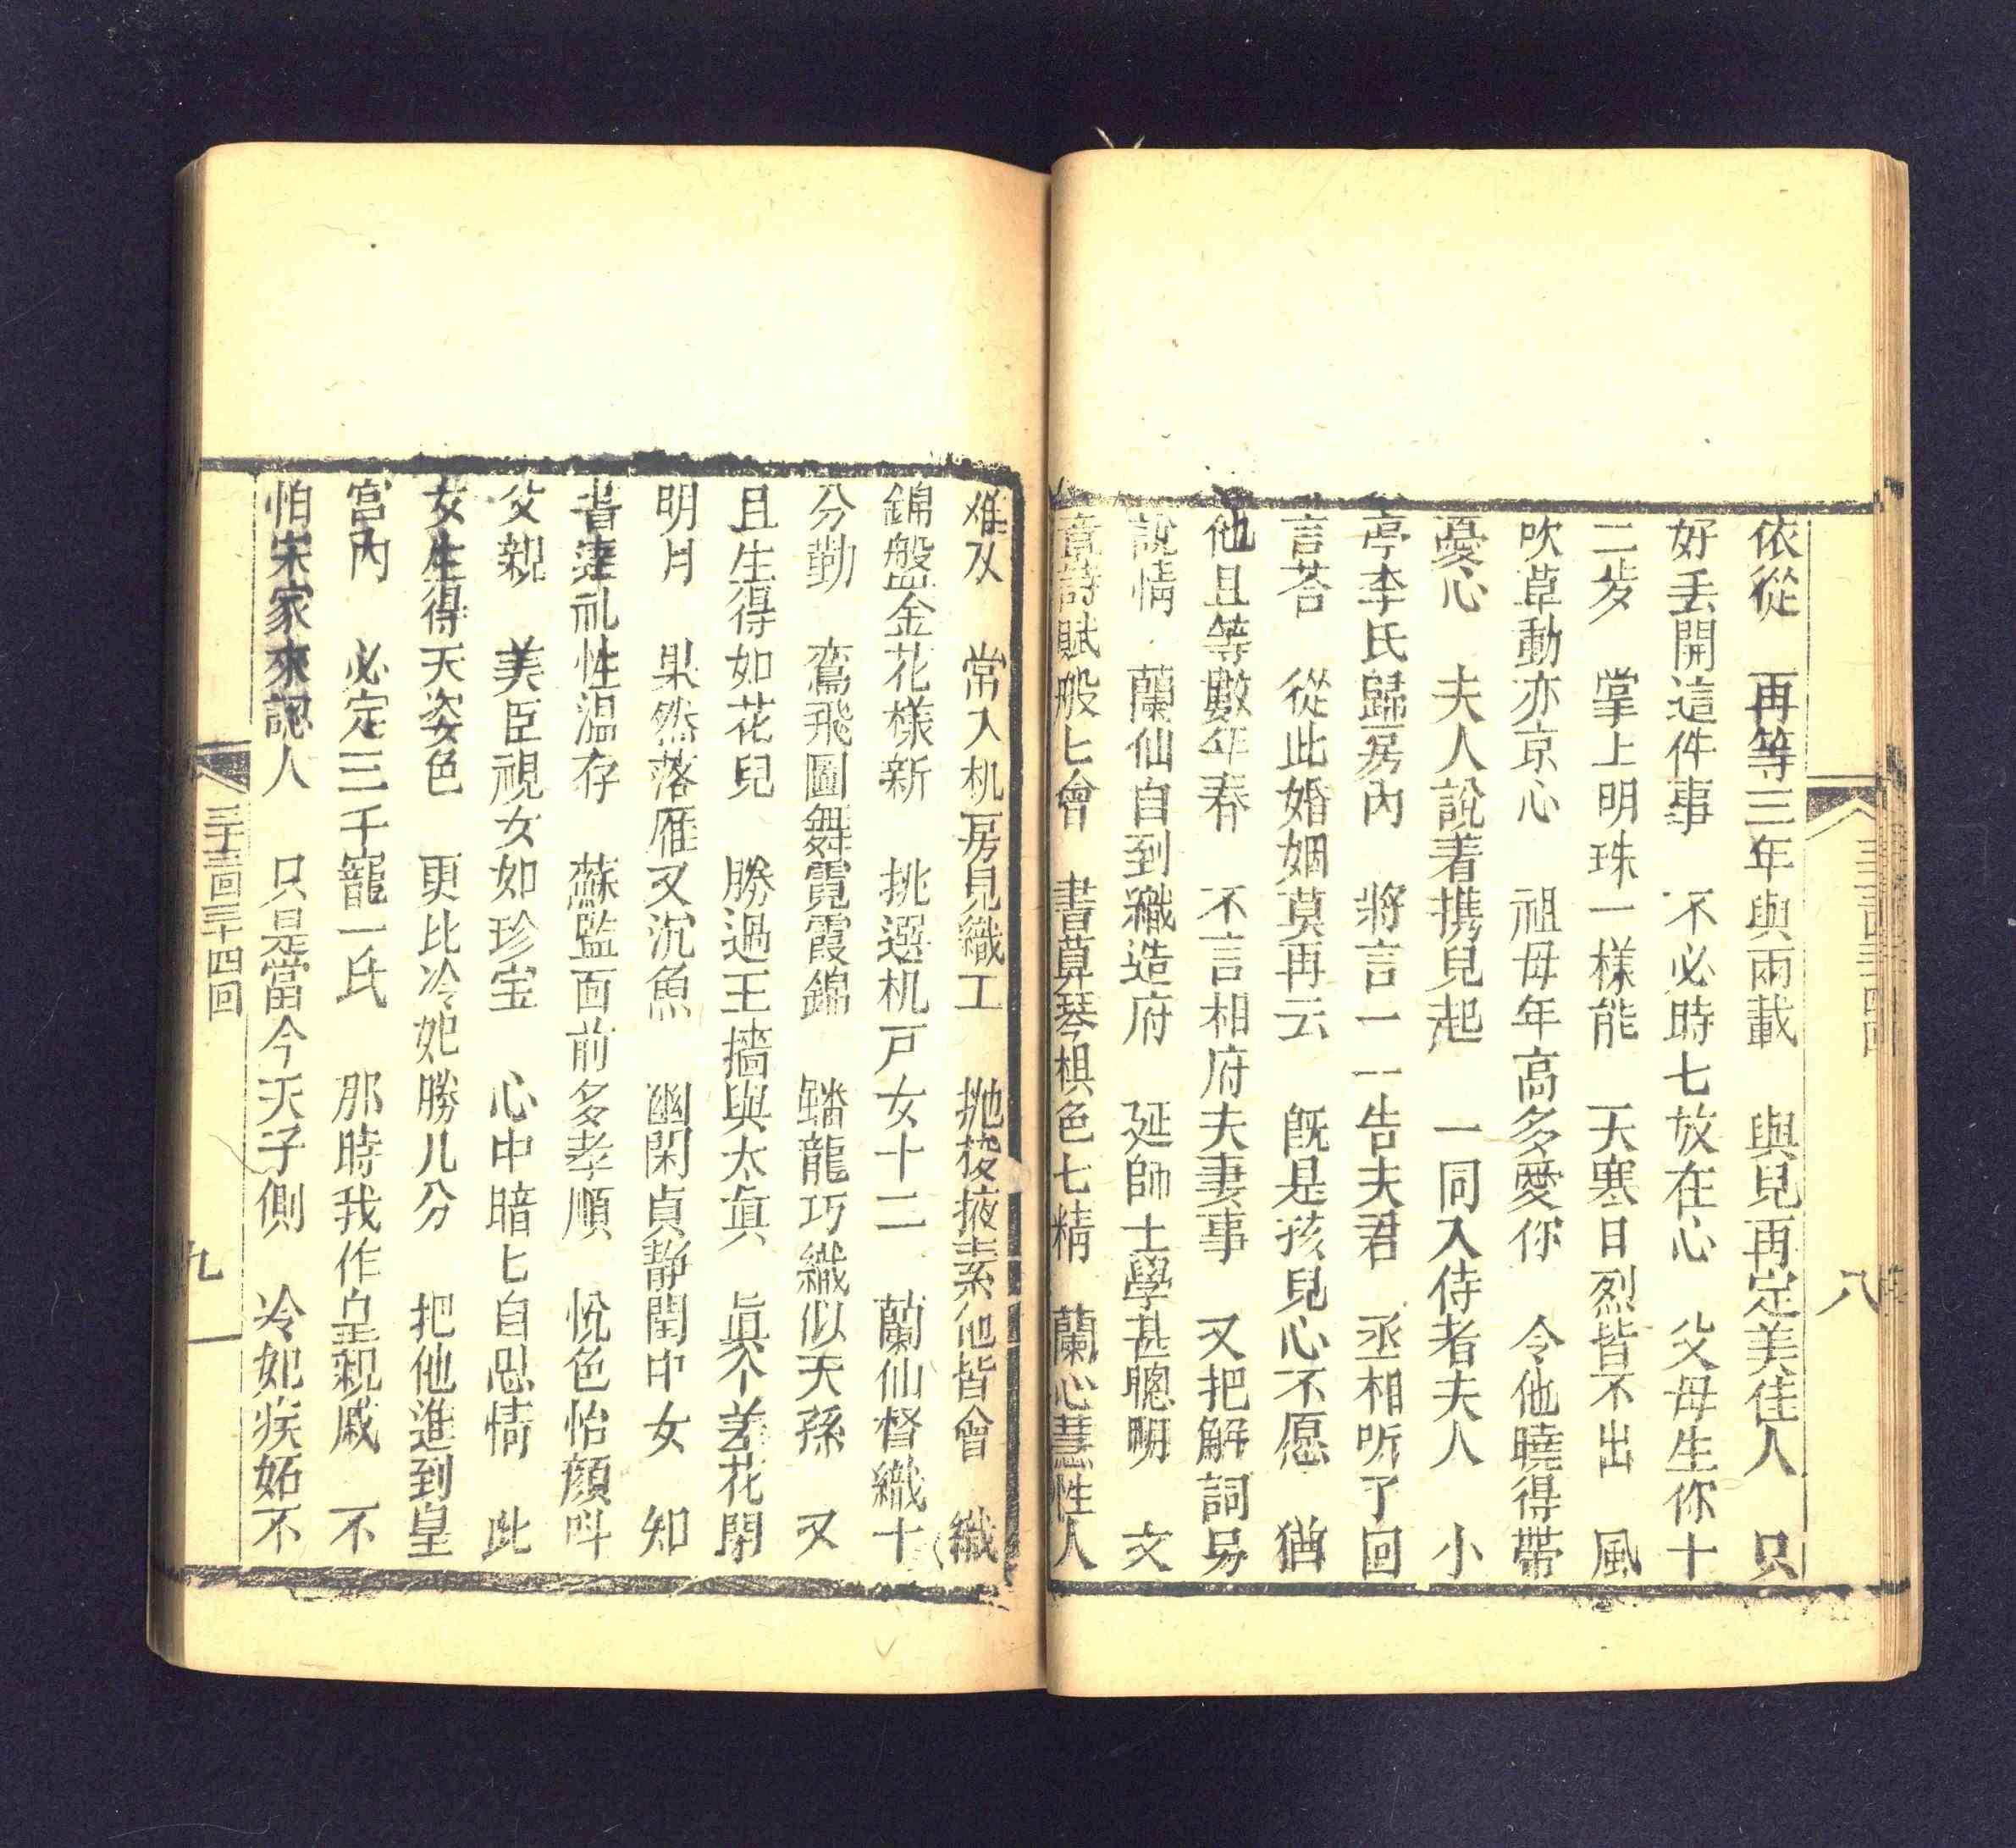 依從　再等三年與兩載　與兒再定美佳人　只
好丢開這件事　不必時七放在心　父母生你十
二岁　掌上明珠一樣能　天寒日烈皆不出　風
吹草動亦京心　祖母年高多愛你　令他曉得帶
憂心　夫人說着携兒起　一同入侍者夫人　小
亭李氏歸房內　將言一一告夫君　丞相听了回
言荅　從此婚姻莫再云　旣是孩兒心不愿　猶
他且等數年春　不言相府夫妻事　又把解詞另
說情　蘭仙自到織造府　延師士學甚聰明　文
章詩賦般匕會　書算琴棋色七精　蘭心慧性人
难及　常入机房見織工　抛梭掖素他皆會　織
錦盤金花樣新　挑選机戸女十二　蘭仙督織十
分勤　鸞飛圖舞霓霞錦　蟠龍巧織似天孫　又
且生得如花兒　勝過王嬙與太眞　眞个羞花閉
明月　果然落雁又沉魚　幽閑貞静閨中女　知
書達礼性温存　蘇監面前多孝順　悅色怡顏呌
父親　美臣視女如珍宝　心中暗匕自思情　此
女生得天姿色　更比冷妃勝几分　把他進到皇
宮內　必定三千寵一氏　那時我作皇親戚　不
怕宋家來認人　只是當今天子側　冷妃疾妬不
三十三回三十四回
九
八